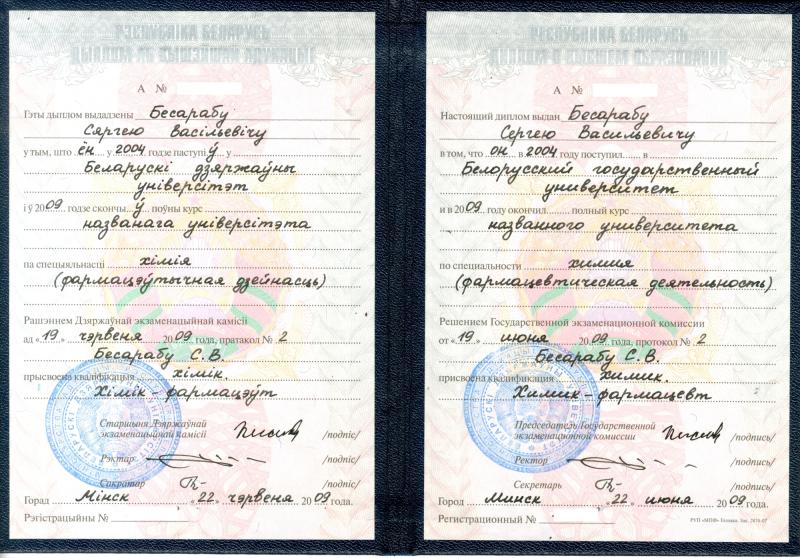 РЭСПУБЛІКА БЕЛАРУСЬ
ДЫПЛОМ АБ ВЫШЭЙШАЙ АДУКАЦЫІ
А №
Гэты дыплом выдадзены Бесарабу
Сяргею Васільевічу
у тым, што ён у 2004 годзе паступіў у
Беларускі дзяржаўны
універсітэт
і ў 2009 годзе скончыў поўны курс
названага універсітэта
па спецыяльнасці хімія
(фармацэўтычная дзейнасць)
Рашэннем Дзяржаўнай экзаменацыйнай камісіі
ад «19» чэрвеня 2009 года, пратакол № 2
Бесарабу С.В.
прысвоена кваліфікацыя хімік.
Хімік-фармацэўт
Старшыня Дзяржаўнай
экзаменацыйнай камісіі /подпіс/
Рэктар /подпіс/
Сакратар /подпіс/
Горад Мінск «22» чэрвеня 2009 года.
Рэгістрацыйны №
РЕСПУБЛИКА БЕЛАРУСЬ
ДИПЛОМ О ВЫСШЕМ ОБРАЗОВАНИИ
А №
Настоящий диплом выдан Бесарабу
Сергею Васильевичу
в том, что он в 2004 году поступил в
Белорусский государственный
университет
и в 2009 году окончил полный курс
названного университета
по специальности химия
(фармацевтическая деятельность)
Решением Государственной экзаменационной комиссии
от «19» июня 2009 года, протокол № 2
Бесарабу С.В.
присвоена квалификация химик.
Химик-фармацевт
Председатель Государственной
экзаменационной комиссии /подпись/
Ректор /подпись/
Секретарь /подпись/
Город Минск «22» июня 2009 года.
Регистрационный №